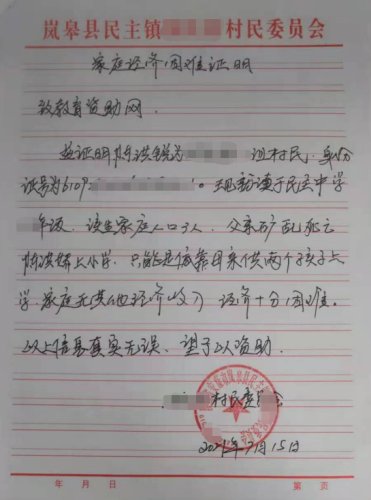 岚皋县民主镇 村民委员会
家庭经济困难证明
致教育资助网.
兹证明陈洪铭为 组村民,身份
证号为6109 。现就读于民主中学
年级,该生家庭人口3人,父亲矿死亡
上小学,只能是依靠母亲供两个孩子上
学,家庭无其他经济收入 经济十分困难.
以上信息真实无误、望予以资助.
村民委 会
2021年7月15日
年 月 日 第 页